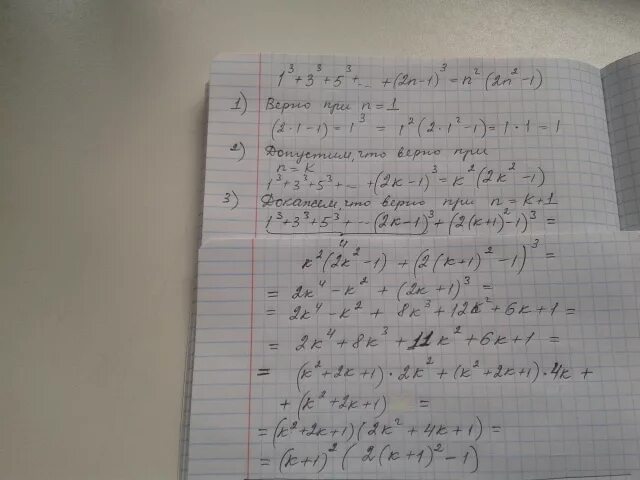 1³+3³+5³+...+(2n-1)³=n²(2n²-1)
1) Верно при n=1
(2·1-1)=1³ = 1²(2·1²-1)=1·1=1
2) Допустим, что верно при
n=k
1³+3³+5³+...+(2k-1)³=k²(2k²-1)
3) Докажем, что верно при n=k+1
1³+3³+5³+...(2k-1)³+(2(k+1)²-1)³=
k²(2k²-1)+(2(k+1)²-1)³=
=2k⁴-k²+(2k+1)³=
=2k⁴-k²+8k³+12k²+6k+1=
=2k⁴+8k³+11k²+6k+1=
=(k²+2k+1)·2k²+(k²+2k+1)·4k+
+(k²+2k+1)=
=(k²+2k+1)(2k²+4k+1)=
=(k+1)²(2(k+1)²-1)